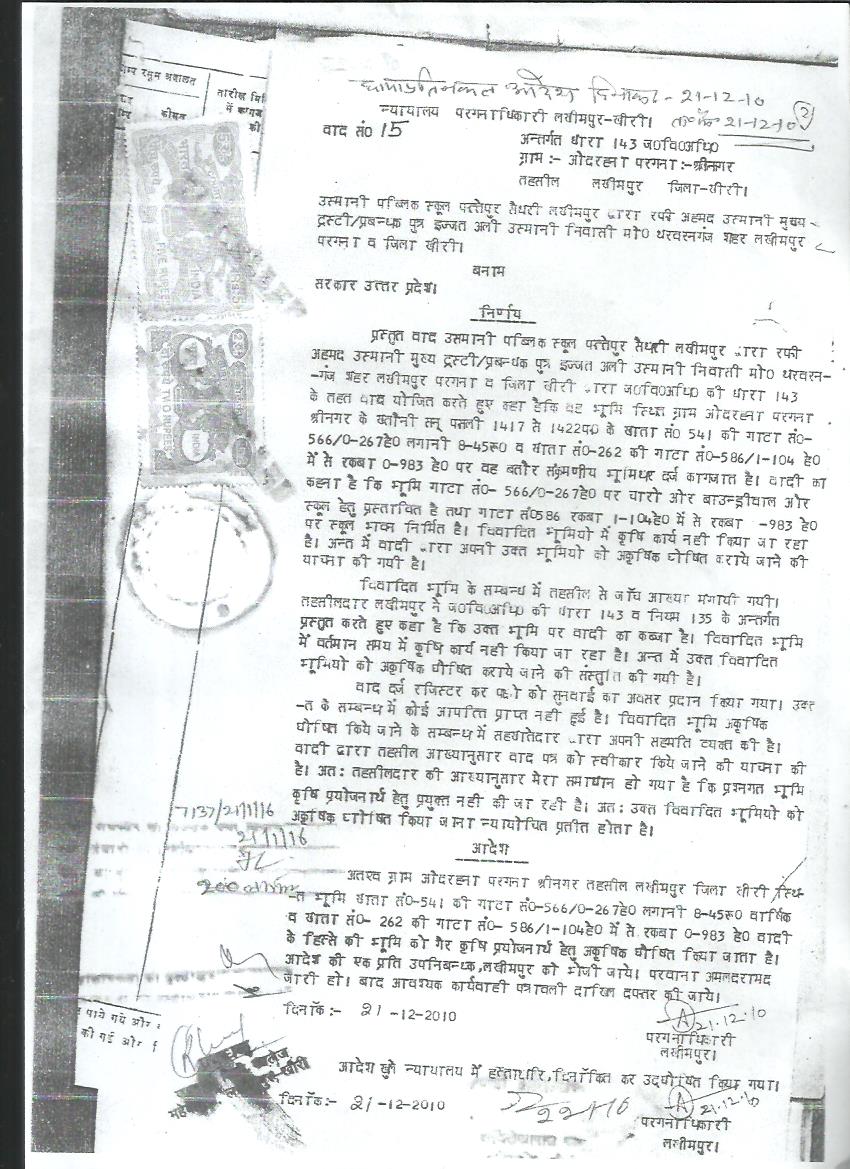 न्यायालय परगनाधिकारी लखीमपुर-खीरी।
21-12-10
वाद सं0 15
अन्तर्गत धारा 143 ज0वि0अधि0
ग्राम :- ओदरहना परगना :- श्रीनगर
तहसील लखीमपुर जिला-खीरी।
उस्मानी पब्लिक स्कूल पत्तेपुर सैधरी लखीमपुर द्वारा रफी अहमद उस्मानी मुख्य-
ट्रस्टी/प्रबन्धक पुत्र इज्जत अली उस्मानी निवासी मो0 थरवरनगंज शहर लखीमपुर
परगना व जिला खीरी।
बनाम
सरकार उत्तर प्रदेश।
निर्णय
प्रस्तुत वाद उसमानी पब्लिक स्कूल पत्तेपुर सैधरी लखीमपुर द्वारा रफी
अहमद उस्मानी मुख्य ट्रस्टी/प्रबन्धक पुत्र इज्जत अली उस्मानी निवासी मो0 थरवरन-
-गंज शहर लखीमपुर परगना व जिला खीरी द्वारा ज0वि0अधि0 की धारा 143
के तहत वाद योजित करते हुए कहा हैकि वह भूमि स्थित ग्राम ओदरहना परगना
श्रीनगर के खतौनी सन् फसली 1417 से 1422फ0 के खाता सं0 541 की गाटा सं0-
566/0-267हे0 लगानी 8-45रू0 व खाता सं0-262 की गाटा सं0-586/1-104 हे0
में से रकबा 0-983 हे0 पर वह बतौर संक्रमणीय भूमिधर दर्ज कागजात है। वादी का
कहना है कि भूमि गाटा सं0- 566/0-267हे0 पर चारो ओर बाउन्ड्रीवाल और
स्कूल हेतु प्रस्तावित है तथा गाटा सं0586 रकबा 1-104हे0 में से रकबा -983 हे0
पर स्कूल भवन निर्मित है। विवादित भूमियों में कृषि कार्य नही किया जा रहा
है। अन्त में वादी द्वारा अपनी उक्त भूमियो को अकृषिक घोषित कराये जाने की
याचना की गयी है।
विवादित भूमि के सम्बन्ध में तहसील से जाँच आख्या मंगायी गयी।
तहसीलदार लखीमपुर ने ज0वि0अधि0 की धारा 143 व नियम 135 के अन्तर्गत
प्रस्तुत करते हुए कहा है कि उक्त भूमि पर वादी का कब्जा है। विवादित भूमि
में वर्तमान समय में कृषि कार्य नही किया जा रहा है। अन्त में उक्त विवादित
भूमियो को अकृषिक घोषित कराये जाने की संस्तुति की गयी है।
वाद दर्ज रजिस्टर कर पक्षो को सुनवाई का अवसर प्रदान किया गया। उक्त
-त के सम्बन्ध में कोई आपत्ति प्राप्त नही हुई है। विवादित भूमि अकृषिक
घोषित किये जाने के सम्बन्ध में सहखातेदार द्वारा अपनी सहमति व्यक्त की है।
वादी द्वारा तहसील आख्यानुसार वाद पत्र को स्वीकार किये जाने की याचना की
है। अत: तहसीलदार की आख्यानुसार मेरा समाधान हो गया है कि प्रश्नगत भूमि
कृषि प्रयोजनार्थ हेतु प्रयुक्त नही की जा रही है। अत: उक्त विवादित भूमियो को
अकृषिक घोषित किया जाना न्यायोचित प्रतीत होता है।
आदेश
अतएव ग्राम ओदरहना परगना श्रीनगर तहसील लखीमपुर जिला खीरी स्थि-
-त भूमि खाता सं0-541 की गाटा सं0-566/0-267हे0 लगानी 8-45रू0 वार्षिक
व खाता सं0- 262 की गाटा सं0- 586/1-104हे0 में से रकबा 0-983 हे0 वादी
के हिस्से की भूमि को गैर कृषि प्रयोजनार्थ हेतु अकृषिक घोषित किया जाता है।
आदेश की एक प्रति उपनिबन्धक,लखीमपुर को भेजी जाये। परवाना अमलदरामद
जारी हो। बाद आवश्यक कार्यवाही पत्रावली दाखिल दफ्तर की जाये।
दिनाँक :- 21 -12-2010
21.12.10
परगनाधिकारी
लखीमपुर।
आदेश खुले न्यायालय में हस्ताक्षरि,दिनाँकित कर उद्घोषित किया गया।
दिनाँक:- 21 -12-2010
21.12.10
परगनाधिकारी
लखीमपुर।
7137/21/1/16
21/1/16
कीमत
INDIA
FIVE RUPEES
TWO RUPEES